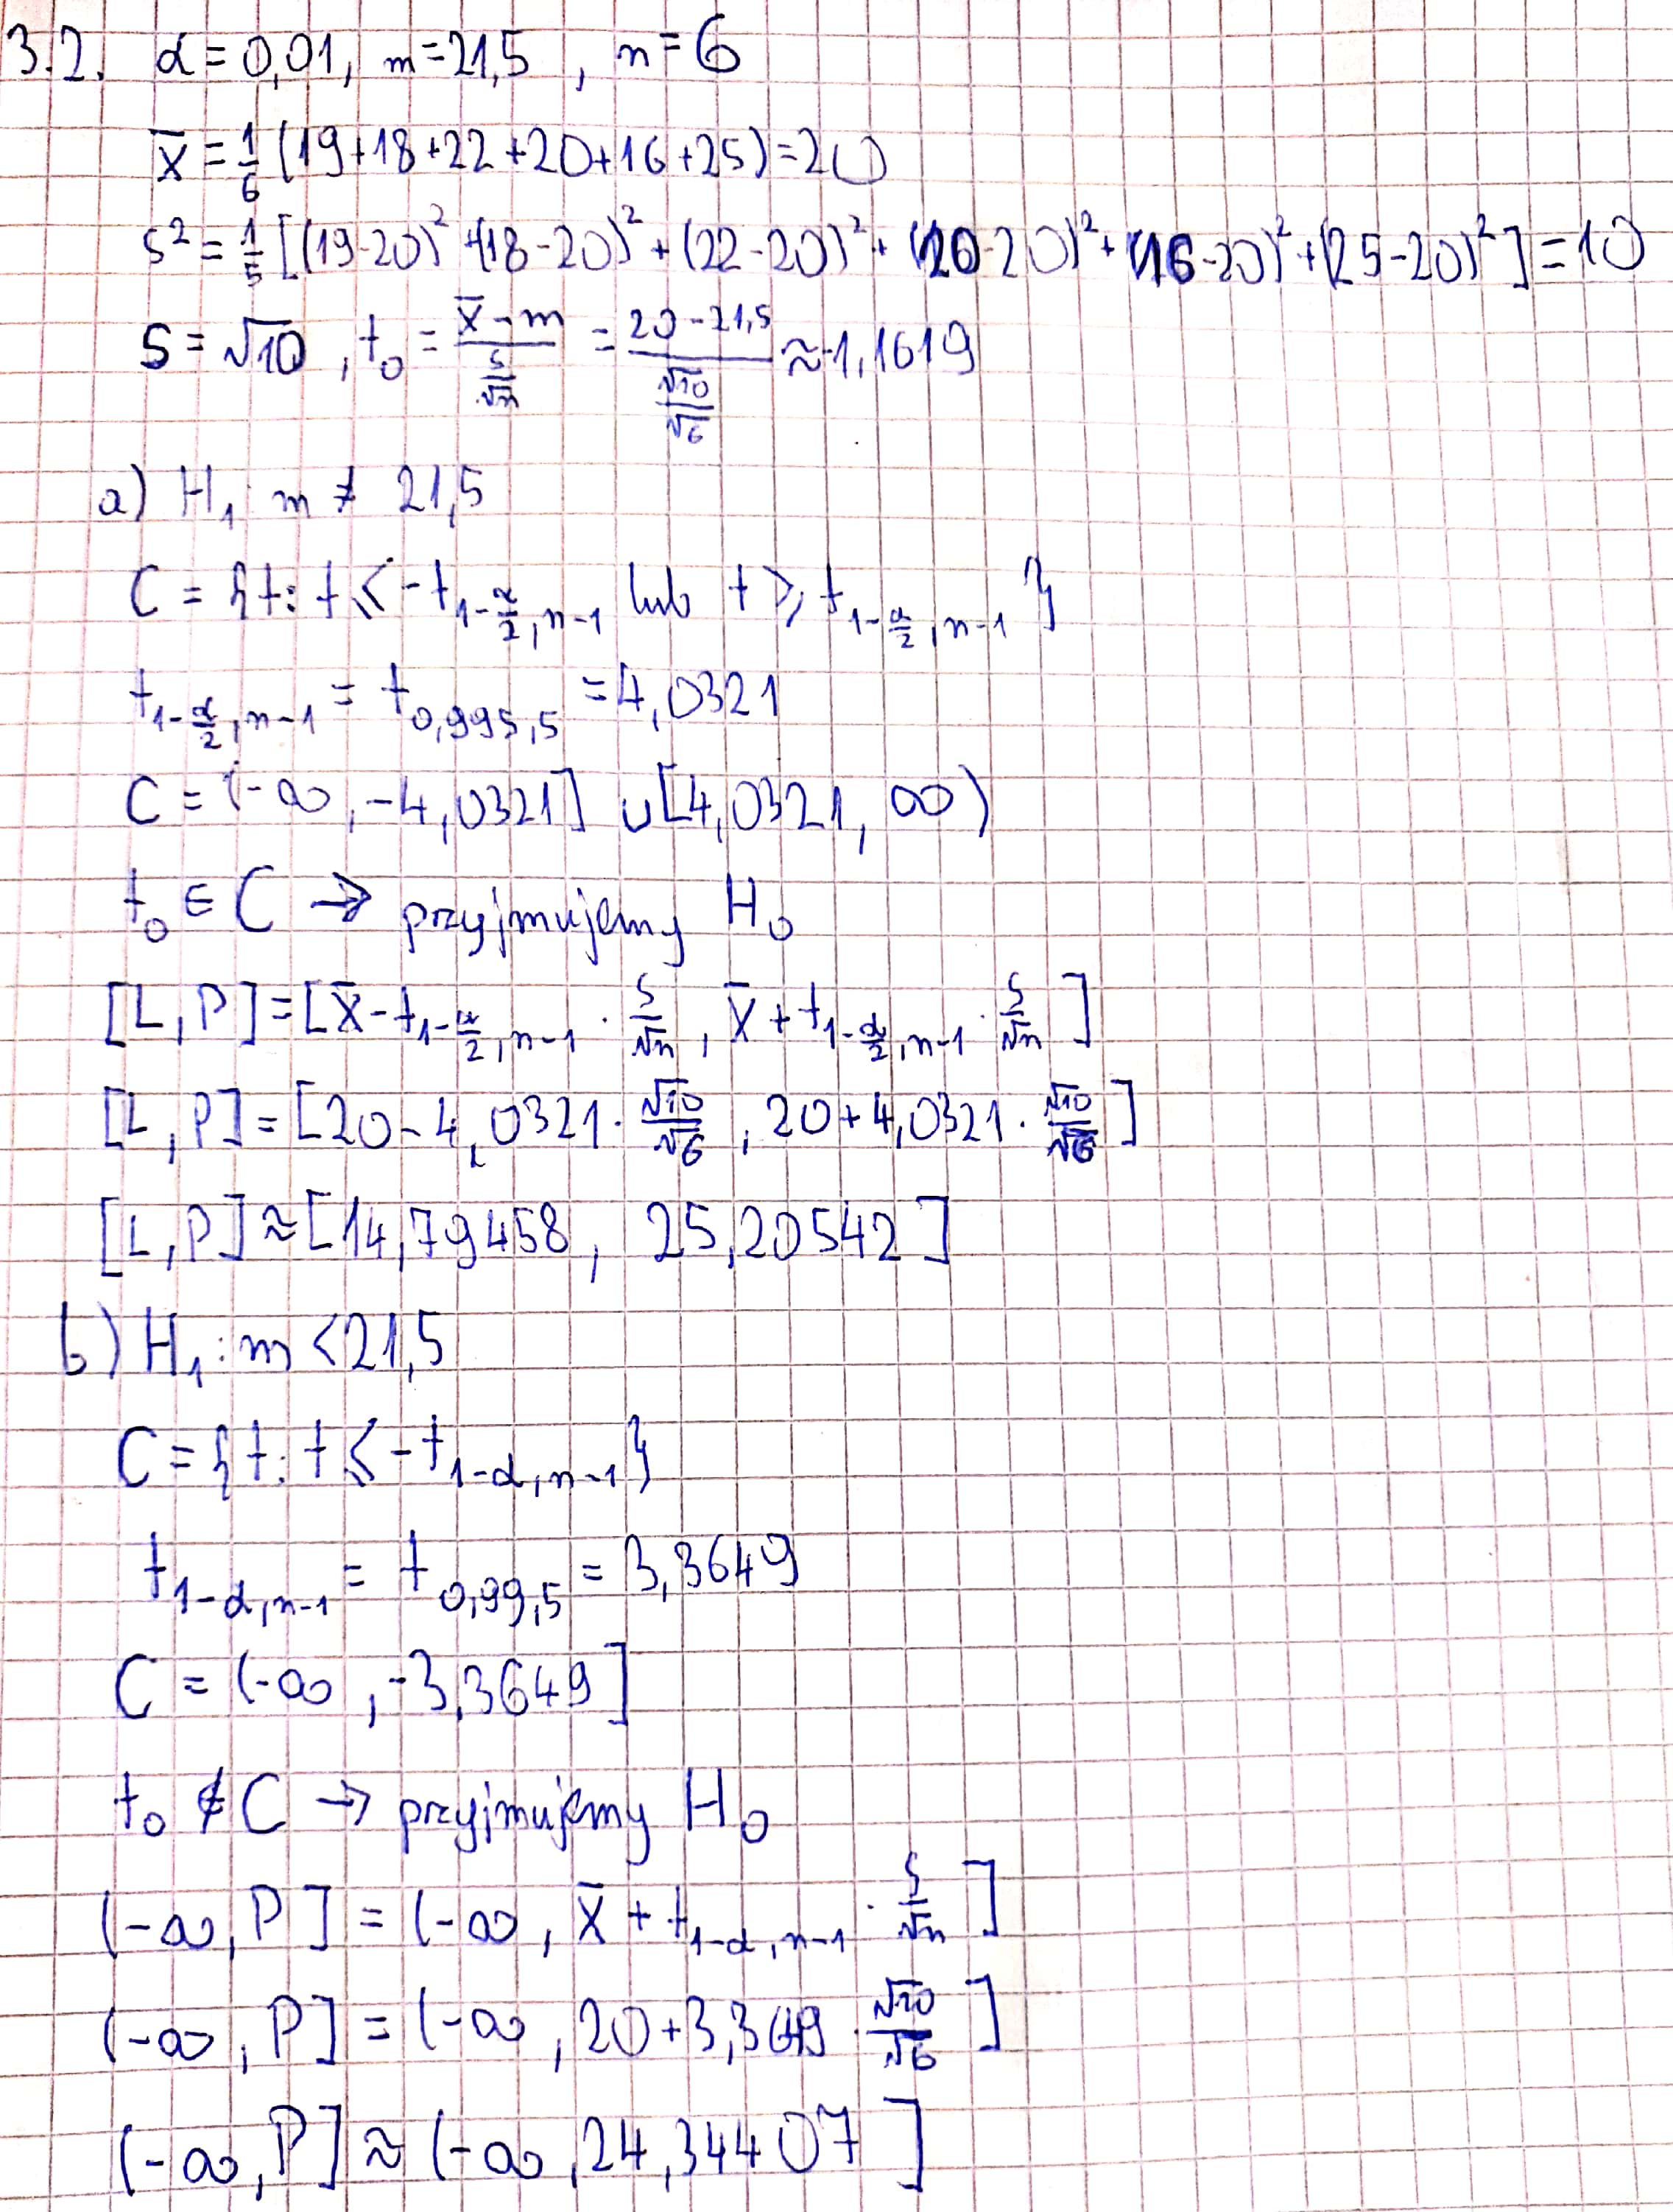 3.2. α = 0,01, m = 21,5, n = 6
x̄ = 1/6 (19+18+22+20+16+25) = 20
s² = 1/5 [(19-20)² + (18-20)² + (22-20)² + (20-20)² + (16-20)² + (25-20)²] = 10
s = √10, t₀ = (x̄ - m)/(s/√n) = (20 - 21,5)/(√10/√6) ≈ -1,1619
a) H₁: m ≠ 21,5
C = {t: t ≤ -t_{1-α/2, n-1} lub t ≥ t_{1-α/2, n-1}}
t_{1-α/2, n-1} = t_{0,995,5} = 4,0321
C = (-∞, -4,0321] ∪ [4,0321, ∞)
t₀ ∈ C → przyjmujemy H₀
[L, P] = [x̄ - t_{1-α/2, n-1} · s/√n, x̄ + t_{1-α/2, n-1} · s/√n]
[L, P] = [20 - 4,0321 · √10/√6, 20 + 4,0321 · √10/√6]
[L, P] ≈ [14,79458, 25,20542]
b) H₁: m < 21,5
C = {t: t ≤ -t_{1-α, n-1}}
t_{1-α, n-1} = t_{0,99,5} = 3,3649
C = (-∞, -3,3649]
t₀ ∉ C → przyjmujemy H₀
(-∞, P] = (-∞, x̄ + t_{1-α, n-1} · s/√n]
(-∞, P] = (-∞, 20 + 3,3649 · √10/√6]
(-∞, P] ≈ (-∞, 24,34407]